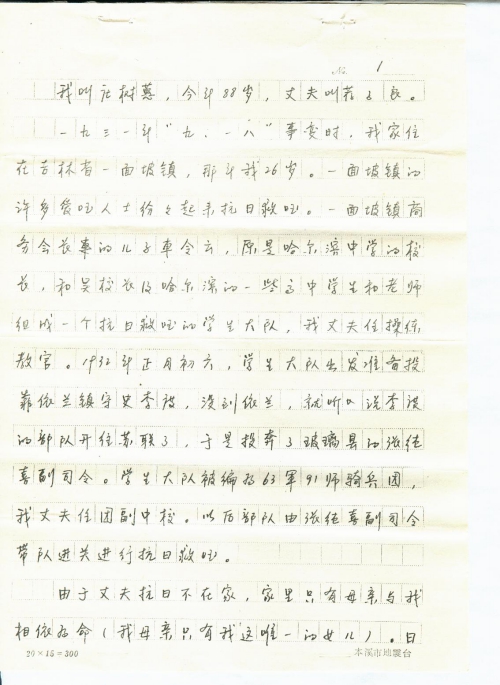 No. 1
我叫杜树蕙，今年88岁，丈夫叫
一九三一年“九．一八”事变时，我家住
在吉林省一面坡镇，那年我26岁。一面坡镇的
许多爱国人士纷々起来抗日救国。一面坡镇商
务会长車的儿子車令云，原是哈尔滨中学的校
长，和吴校长及哈尔滨的一些高中学生和老师
组成一个抗日救国的学生大队，我丈夫任操练
教官。1932年正月初六，学生大队出发准备投
靠依兰镇守史李度，没到依兰，就听人说李度
的部队开往苏联了，于是投奔了玻璃县的张结
喜副司令。学生大队被编为63軍91师骑兵团，
我丈夫任团副中校。以后部队由张结喜副司令
带队进关进行抗日救国。
由于丈夫抗日不在家，家里只有母亲与我
相依为命（我母亲只有我这唯一的女儿）。日
20×15=300 本溪市地震台